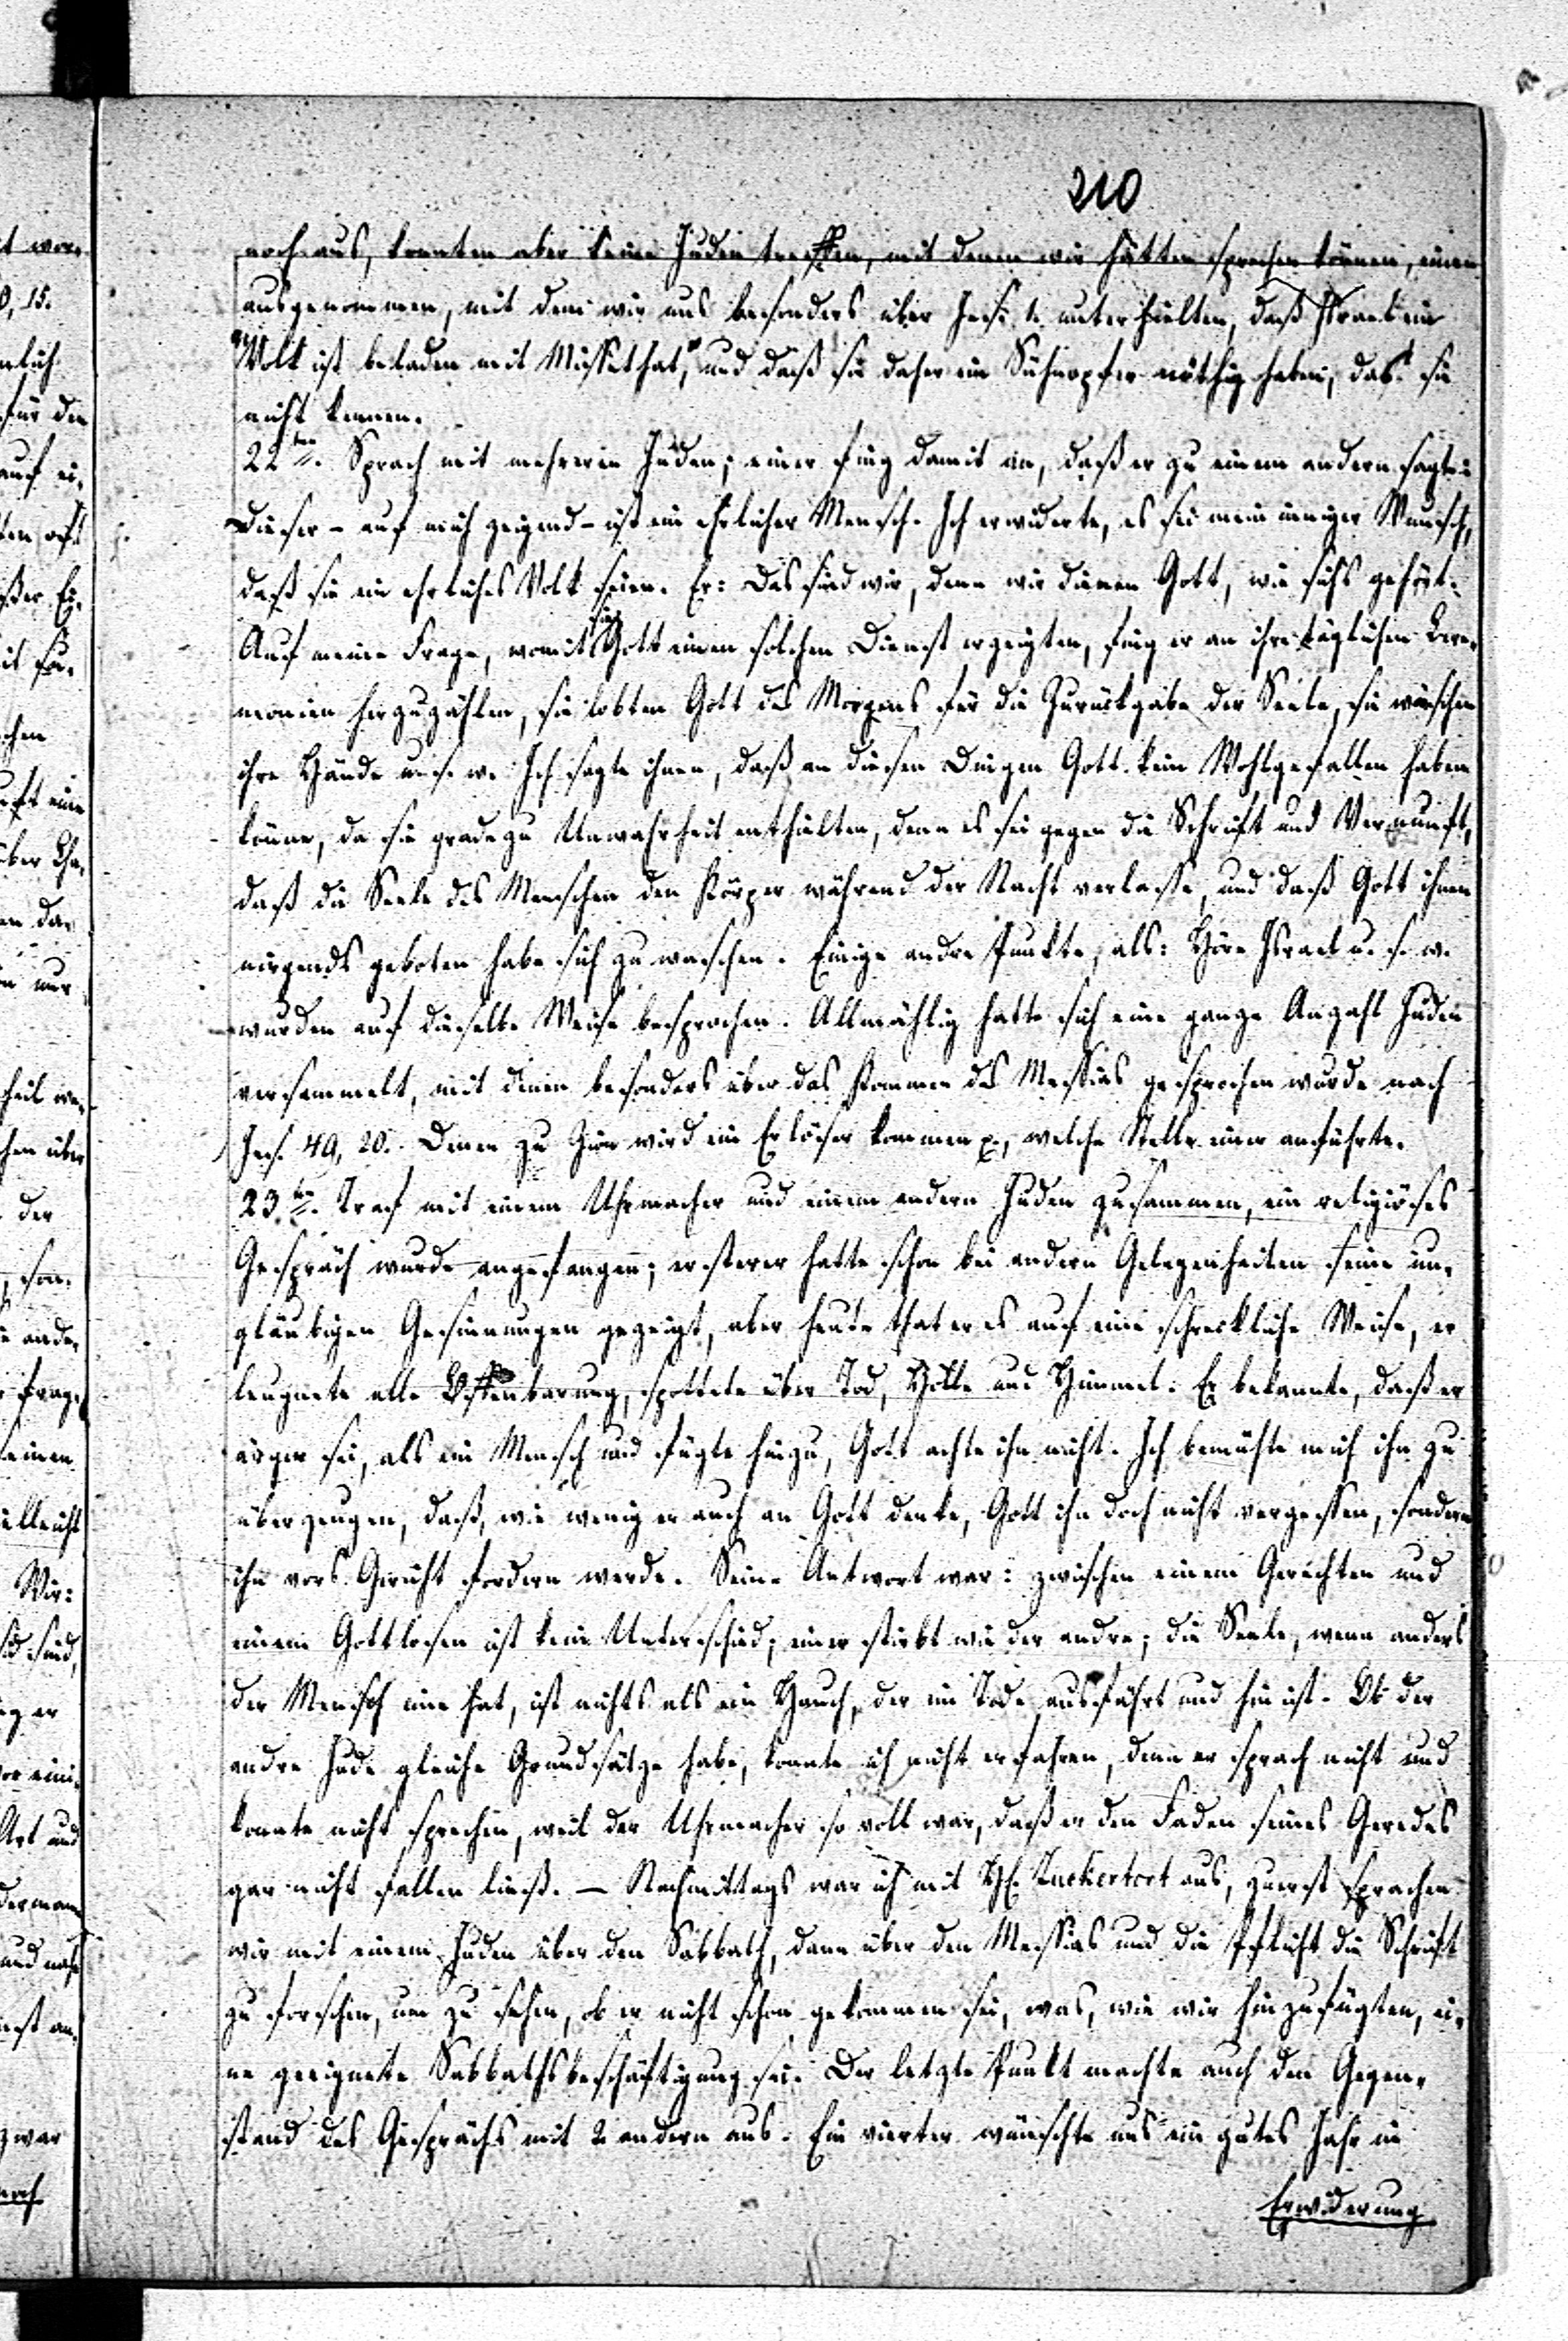 210
noch aus, konnten aber keine Juden treffen, mit denen wir hätten sprechen können, einen
ausgenommen, mit dem wir uns besonders über Jes. 1. unterhielten, daß Israel ein
„Volk ist beladen mit Missethat,“ und daß sie daher ein Sühnopfer nöthig haben, das sie
nicht kennen.
22ten. Sprach mit mehreren Juden; einer fing damit an, daß er zu einem andern sagte:
Dieser – auf mich zeigend – ist ein ehrlicher Mensch. Ich erwiderte, es sei mein inniger Wunsch,
daß sie ein ehrliches Volk seien. Er: Das sind wir, denn wir dienen Gott, wie sichs gehört.
Auf meine Frage, womit sie Gott einen solchen Dienst erzeigten, fing er an ihre täglichen Cere-
monien herzuzählen, sie lobten Gott des Morgens für die Zurückgabe der Seele, sie wüschen
ihre Hände u. s. w. Ich sagte ihnen, daß an diesen Dingen Gott kein Wohlgefallen haben
könne, da sie gradezu Unwahrheit enthielten, denn es sei gegen die Schrift und Vernunft,
daß die Seele des Menschen den Körper während der Nacht verlasse, und daß Gott ihnen
nirgends geboten habe sich zu waschen. Einige andre Punkte, als: Höre Israel u. s. w.
wurden auf dieselbe Weise besprochen. Allmählig hatte sich eine ganze Anzahl Juden
versammelt, mit denen besonders über das Kommen des Messias gesprochen wurde nach
Jes. 49, 20. Denen zu Zion wird ein Erlöser kommen p., welche Stelle einer anführte.
23ten. Traf mit einem Uhrmacher und einem andern Juden zusammen, ein religiöses
Gespräch wurde angefangen; ersterer hatte schon bei andern Gelegenheiten seine un-
gläubigen Gesinnungen gezeigt, aber heute that er es auf eine schreckliche Weise, er
leugnete alle Offenbarung, spottete über Tod, Hölle und Himmel. Er bekannte, daß er
ärger sei, als ein Mensch und fügte hinzu, Gott achte ihn nicht. Ich bemühte mich ihn zu
überzeugen, daß, wie wenig er auch an Gott denke, Gott ihn doch nicht vergessen, sondern
ihn vors Gericht fordern werde. Seine Antwort war: zwischen einem Gerechten und
einem Gottlosen ist kein Unterschied; einer stirbt wie der andre; die Seele, wenn anders
der Mensch eine hat, ist nichts als ein Hauch, der im Tode ausfährt und hin ist. Ob der
andre Jude gleiche Grundsätze habe, konnte ich nicht erfahren, denn er sprach nicht und
konnte nicht sprechen, weil der Uhrmacher so voll war, daß er den Faden seines Geredes
gar nicht fallen ließ. — Nachmittags war ich mit H. Zuckertort aus, zuerst sprachen
wir mit einem Juden über den Sabbath, dann über den Messias und die Pflicht die Schrift
zu forschen, um zu sehen, ob er nicht schon gekommen sei, was, wie wir hinzufügten, ei-
ne geeignete Sabbathsbeschäftigung sei. Der letzte Punkt machte auch den Gegen-
stand des Gesprächs mit 2 andern aus. Ein vierter wünschte uns ein gutes Jahr in
Erwiderung